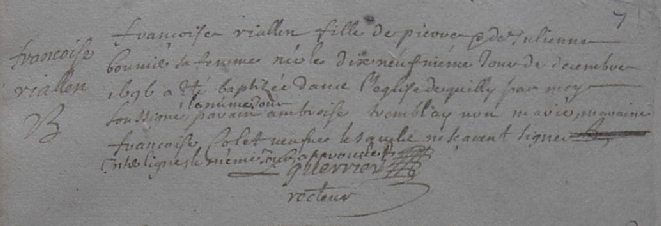 7
françoise
viallen
B
françoise viallen fille de pierre & de Julienne
bounié sa femme née le dix neufvieme Jour de decembre
1696 a été baptizée dans l'eglise de quilly par moy
soussigné parain ambroise tremblay non marié, maraine
le meme Jour
françoise Colet veufue lesquels ne sçavent signer
Interligne le même Jour approuvé
guerrier
recteur